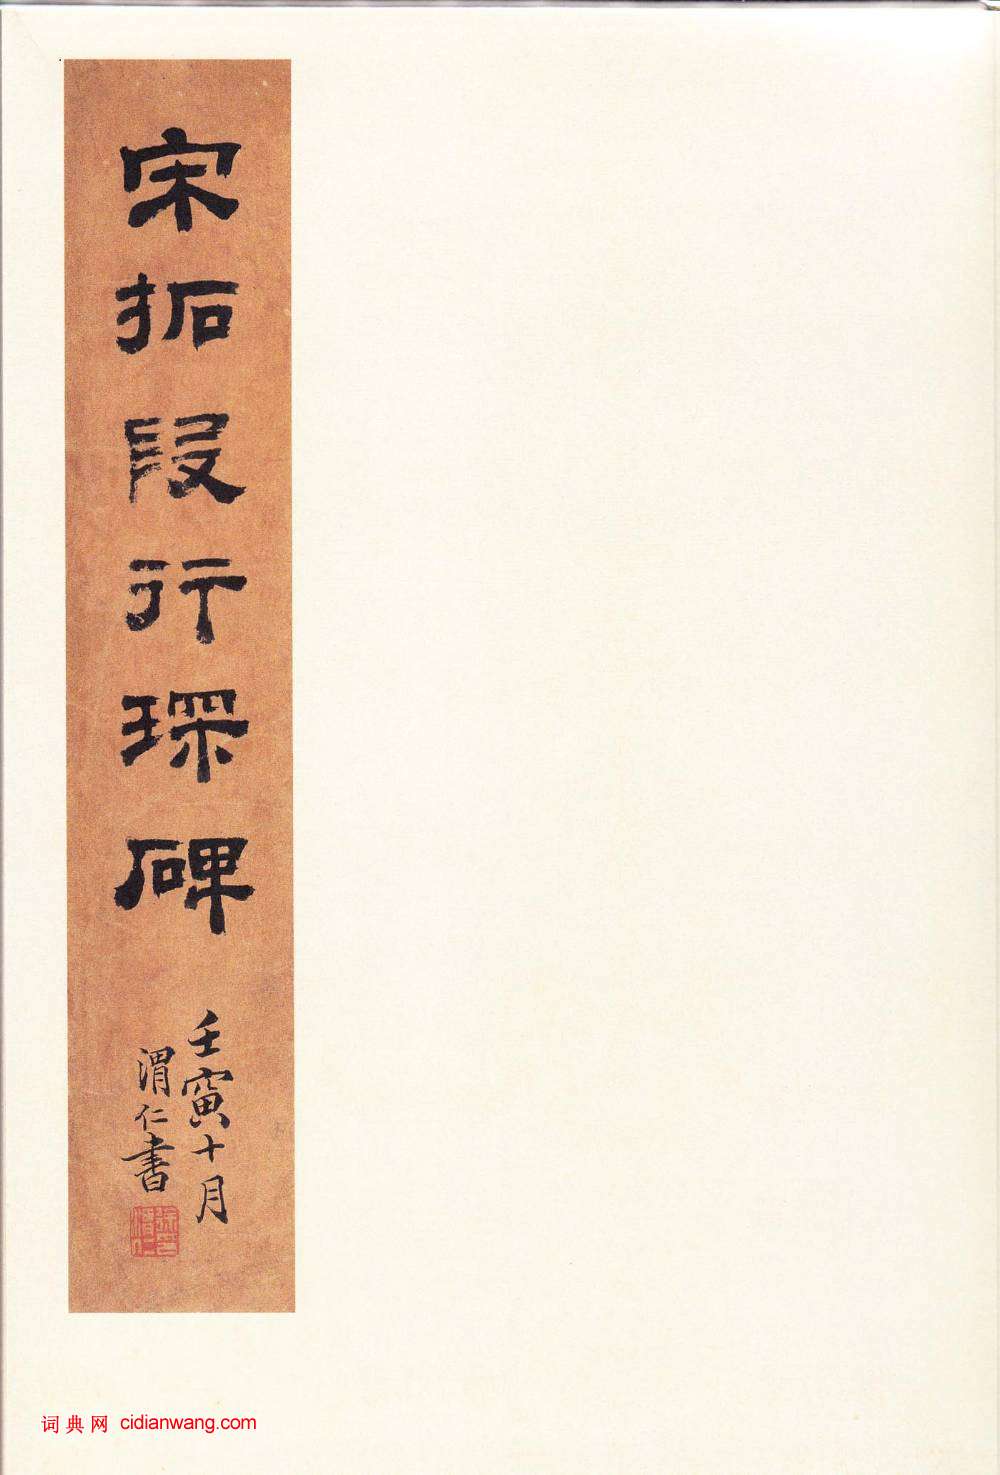 宋拓段行琛碑
壬寅十月
渭仁書
词典网 cidianwang.com